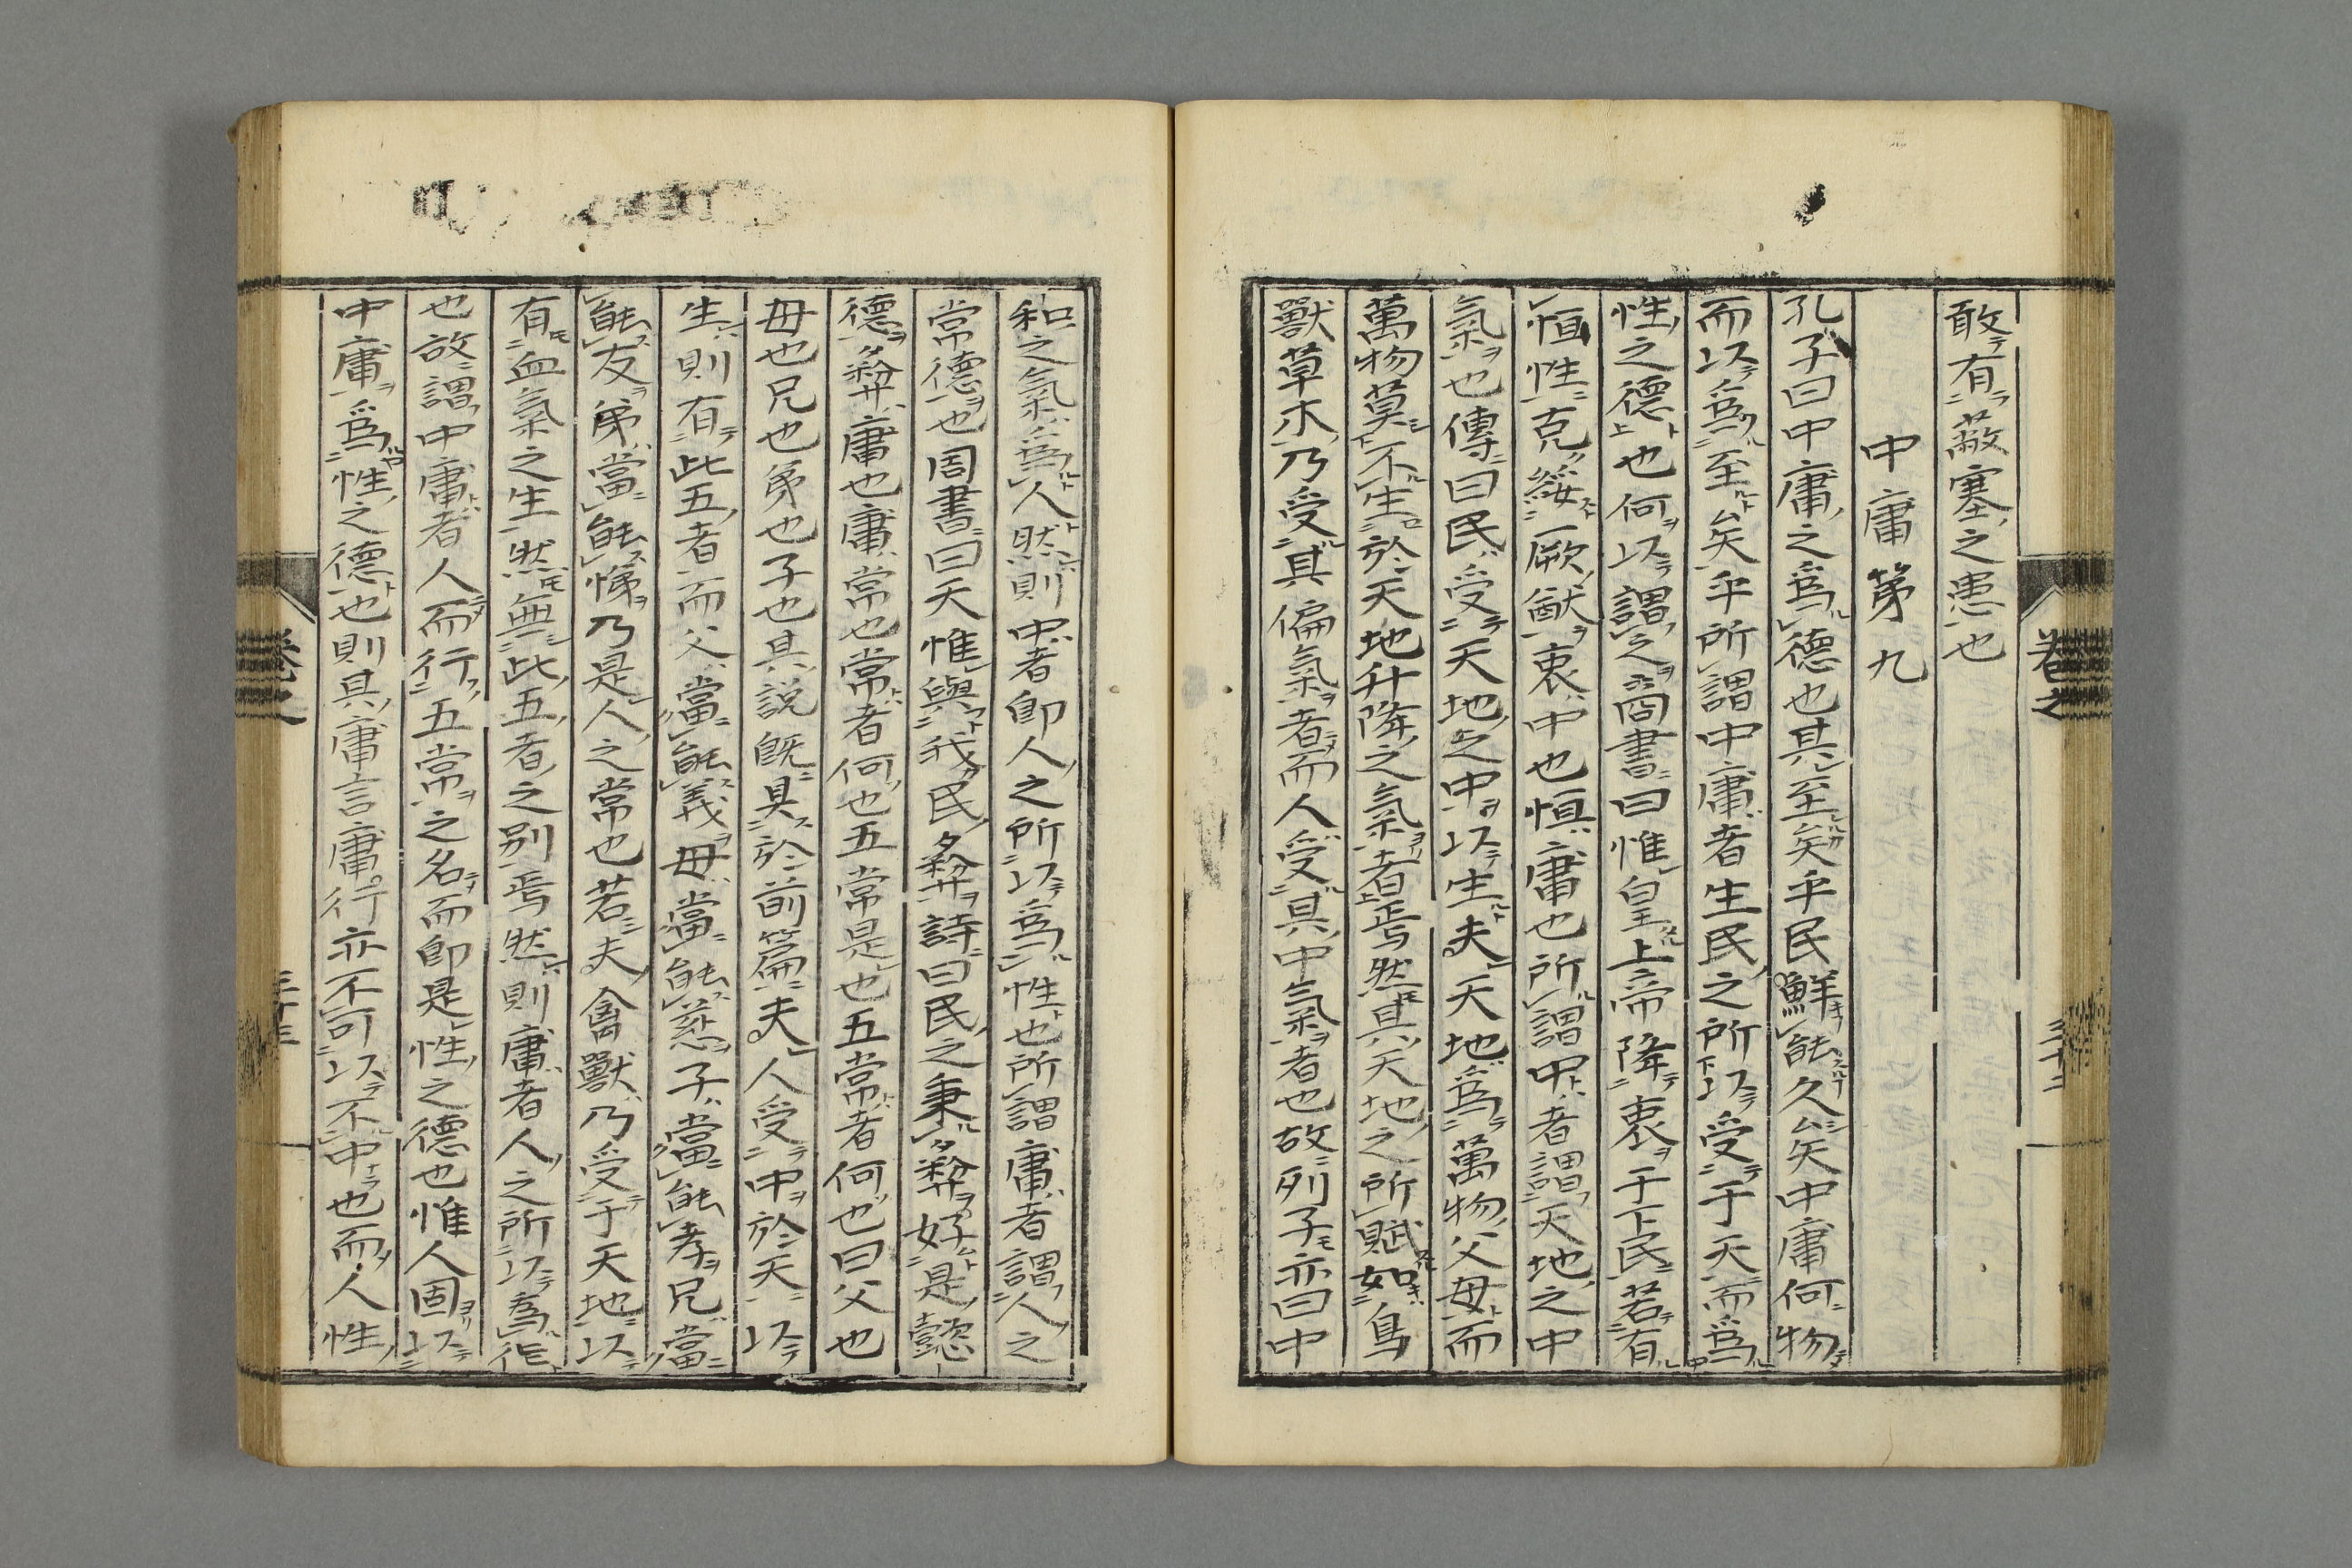 敢有蔽塞之患也
中庸第九
孔子曰中庸之爲德也其至矣乎民鮮能久矣中庸何物
而以爲至矣乎所謂中庸者生民之所以受于天而爲
性之德也何以謂之商書曰惟皇上帝降衷于下民若有
恒性克綏厥猷衷中也恒庸也所謂中者謂天地之中
氣也傳曰民受天地之中以生夫天地爲萬物父母而
萬物莫不生於天地升降之氣者焉然其天地之所賦如鳥
獸草木乃受其偏氣者而人受其中氣者也故列子亦曰中
和之氣爲人然則中者卽人之所以爲性也所謂庸者謂人之
常德也周書曰天惟與我民彝詩曰民之秉彝好是懿
德彝庸也庸常也常者何也五常是也五常者何也曰父也
母也兄也弟也子也其說既具於前篇夫人受中於天以
生則有此五者而父當能義母當能慈子當能孝兄當
能友弟當能悌乃是人之常也若夫禽獸乃受于天地以
有血氣之生然無此五者之別焉然則庸者人之所以爲
也故謂中庸者人而行五常之名而卽是性之德也惟人固以
中庸爲性之德也則其庸言庸行亦不可以不中也而人性
卷之
三十二
卷之
三十三